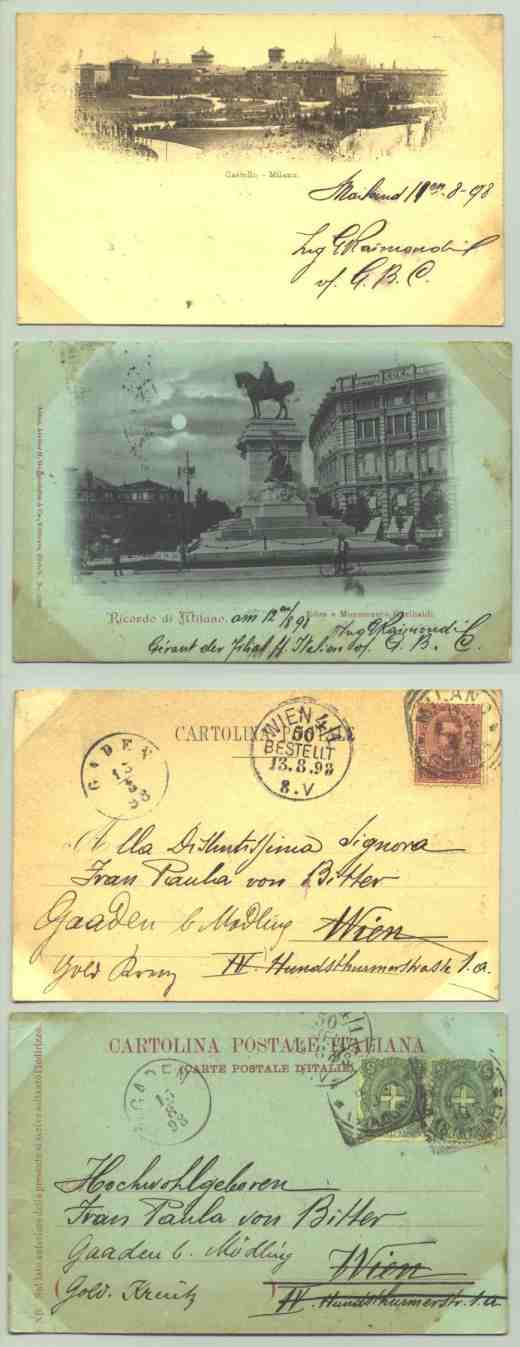 Castello - Milano.
Mailand 11en-8-98
Ing GRaimondi
of. G. B. C.
Ricordo di Milano. am 12en/8 98
Foro e Monumento Garibaldi.
Ing GRaimondi
Girant der Filial f. Italien of. G. B. C.
CARTOLINA POSTALE
GADEN
13
8
98
WIEN 4/1
50
BESTELLT
13.8.98
8.V
MILANO
Alla Distintissima Signora
Frau Paula von Bitter
Gaaden b. Mödling Wien
Gold Kreuz IV. Hundsthurmerstrasse 1.a.
CARTOLINA POSTALE ITALIANA
(CARTE POSTALE D'ITALIE)
NB. Sul lato anteriore della presente si scrive soltanto l'indirizzo.
GADEN
13
8
98
50
Hochwohlgeboren
Frau Paula von Bitter
Gaaden b. Mödling Wien
Gold. Kreutz IV. Hundsthurmerstr. 1.a